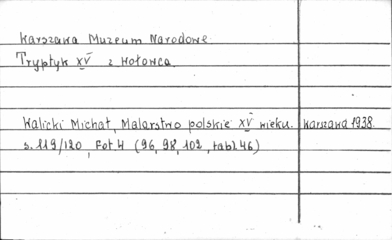 Warszawa Muzeum Narodowe
Tryptyk XV z Wołowca
Walicki Michał, Malarstwo polskie XV wieku. Warszawa 1938.
s. 119/120, Fot 4 (96, 98, 102, tabl 46)